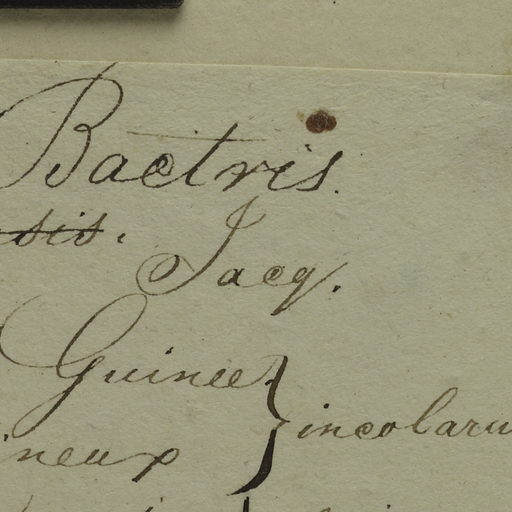 Bactris.
sis.
Jacq.
Guinee
ineux } incolaru